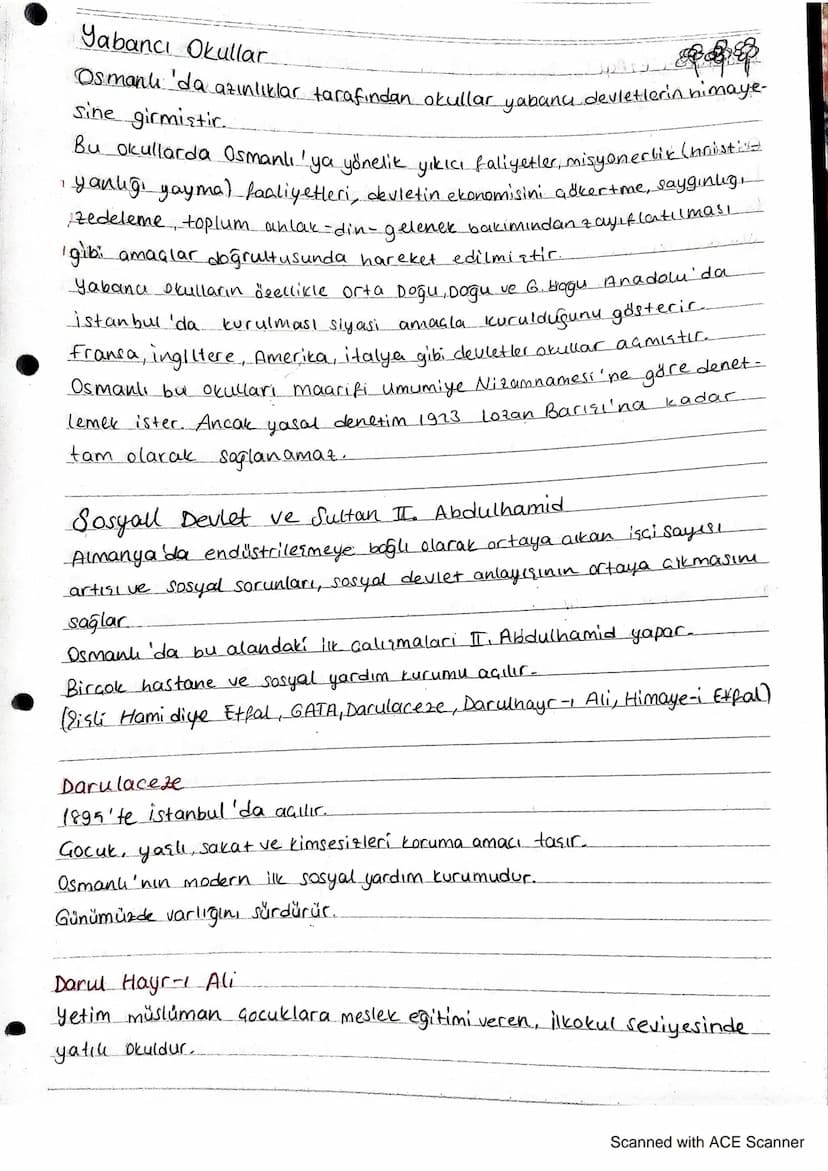 Yabancı Okullar
Osmanlı'da azınlıklar tarafından okullar yabancı devletlerin himaye-
sine girmiştir.
Bu okullarda Osmanlı'ya yönelik yıkıcı faliyetler, misyonerlik (hristi-
yanlığı yayma) faaliyetleri, devletin ekonomisini çökertme, saygınlığı
zedeleme, toplum ahlak-din-gelenek bakımından zayıflatılması
gibi amaçlar doğrultusunda hareket edilmiştir.
Yabancı okulların özellikle Orta Doğu, Doğu ve G. Doğu Anadolu'da
İstanbul'da kurulması siyasi amaçla kurulduğunu gösterir.
Fransa, İngiltere, Amerika, İtalya gibi devletler okullar açmıştır.
Osmanlı bu okulları maarifi Umumiye Nizamnamesi'ne göre denet-
lemek ister. Ancak yasal denetim 1923 Lozan Barışı'na kadar
tam olarak sağlanamaz.
Sosyall Devlet ve Sultan II. Abdulhamid
Almanya'da endüstrileşmeye bağlı olarak ortaya çıkan işçi sayısı
artışı ve sosyal sorunları, sosyal devlet anlayışının ortaya çıkmasını
sağlar.
Osmanlı'da bu alandaki ilk çalışmaları II. Abdulhamid yapar.
Birçok hastane ve sosyal yardım kurumu açılır.
(Şişli Hamidiye Etfal, GATA, Darulaceze, Darulhayr-ı Ali, Himaye-i Etfal)
Darulaceze
1895'te İstanbul'da açılır.
Çocuk, yaşlı, sakat ve kimsesizleri koruma amacı taşır.
Osmanlı'nın modern ilk sosyal yardım kurumudur.
Günümüzde varlığını sürdürür.
Darul Hayr-ı Ali
Yetim müslüman çocuklara meslek eğitimi veren, ilkokul seviyesinde
yatılı okuldur.
Scanned with ACE Scanner